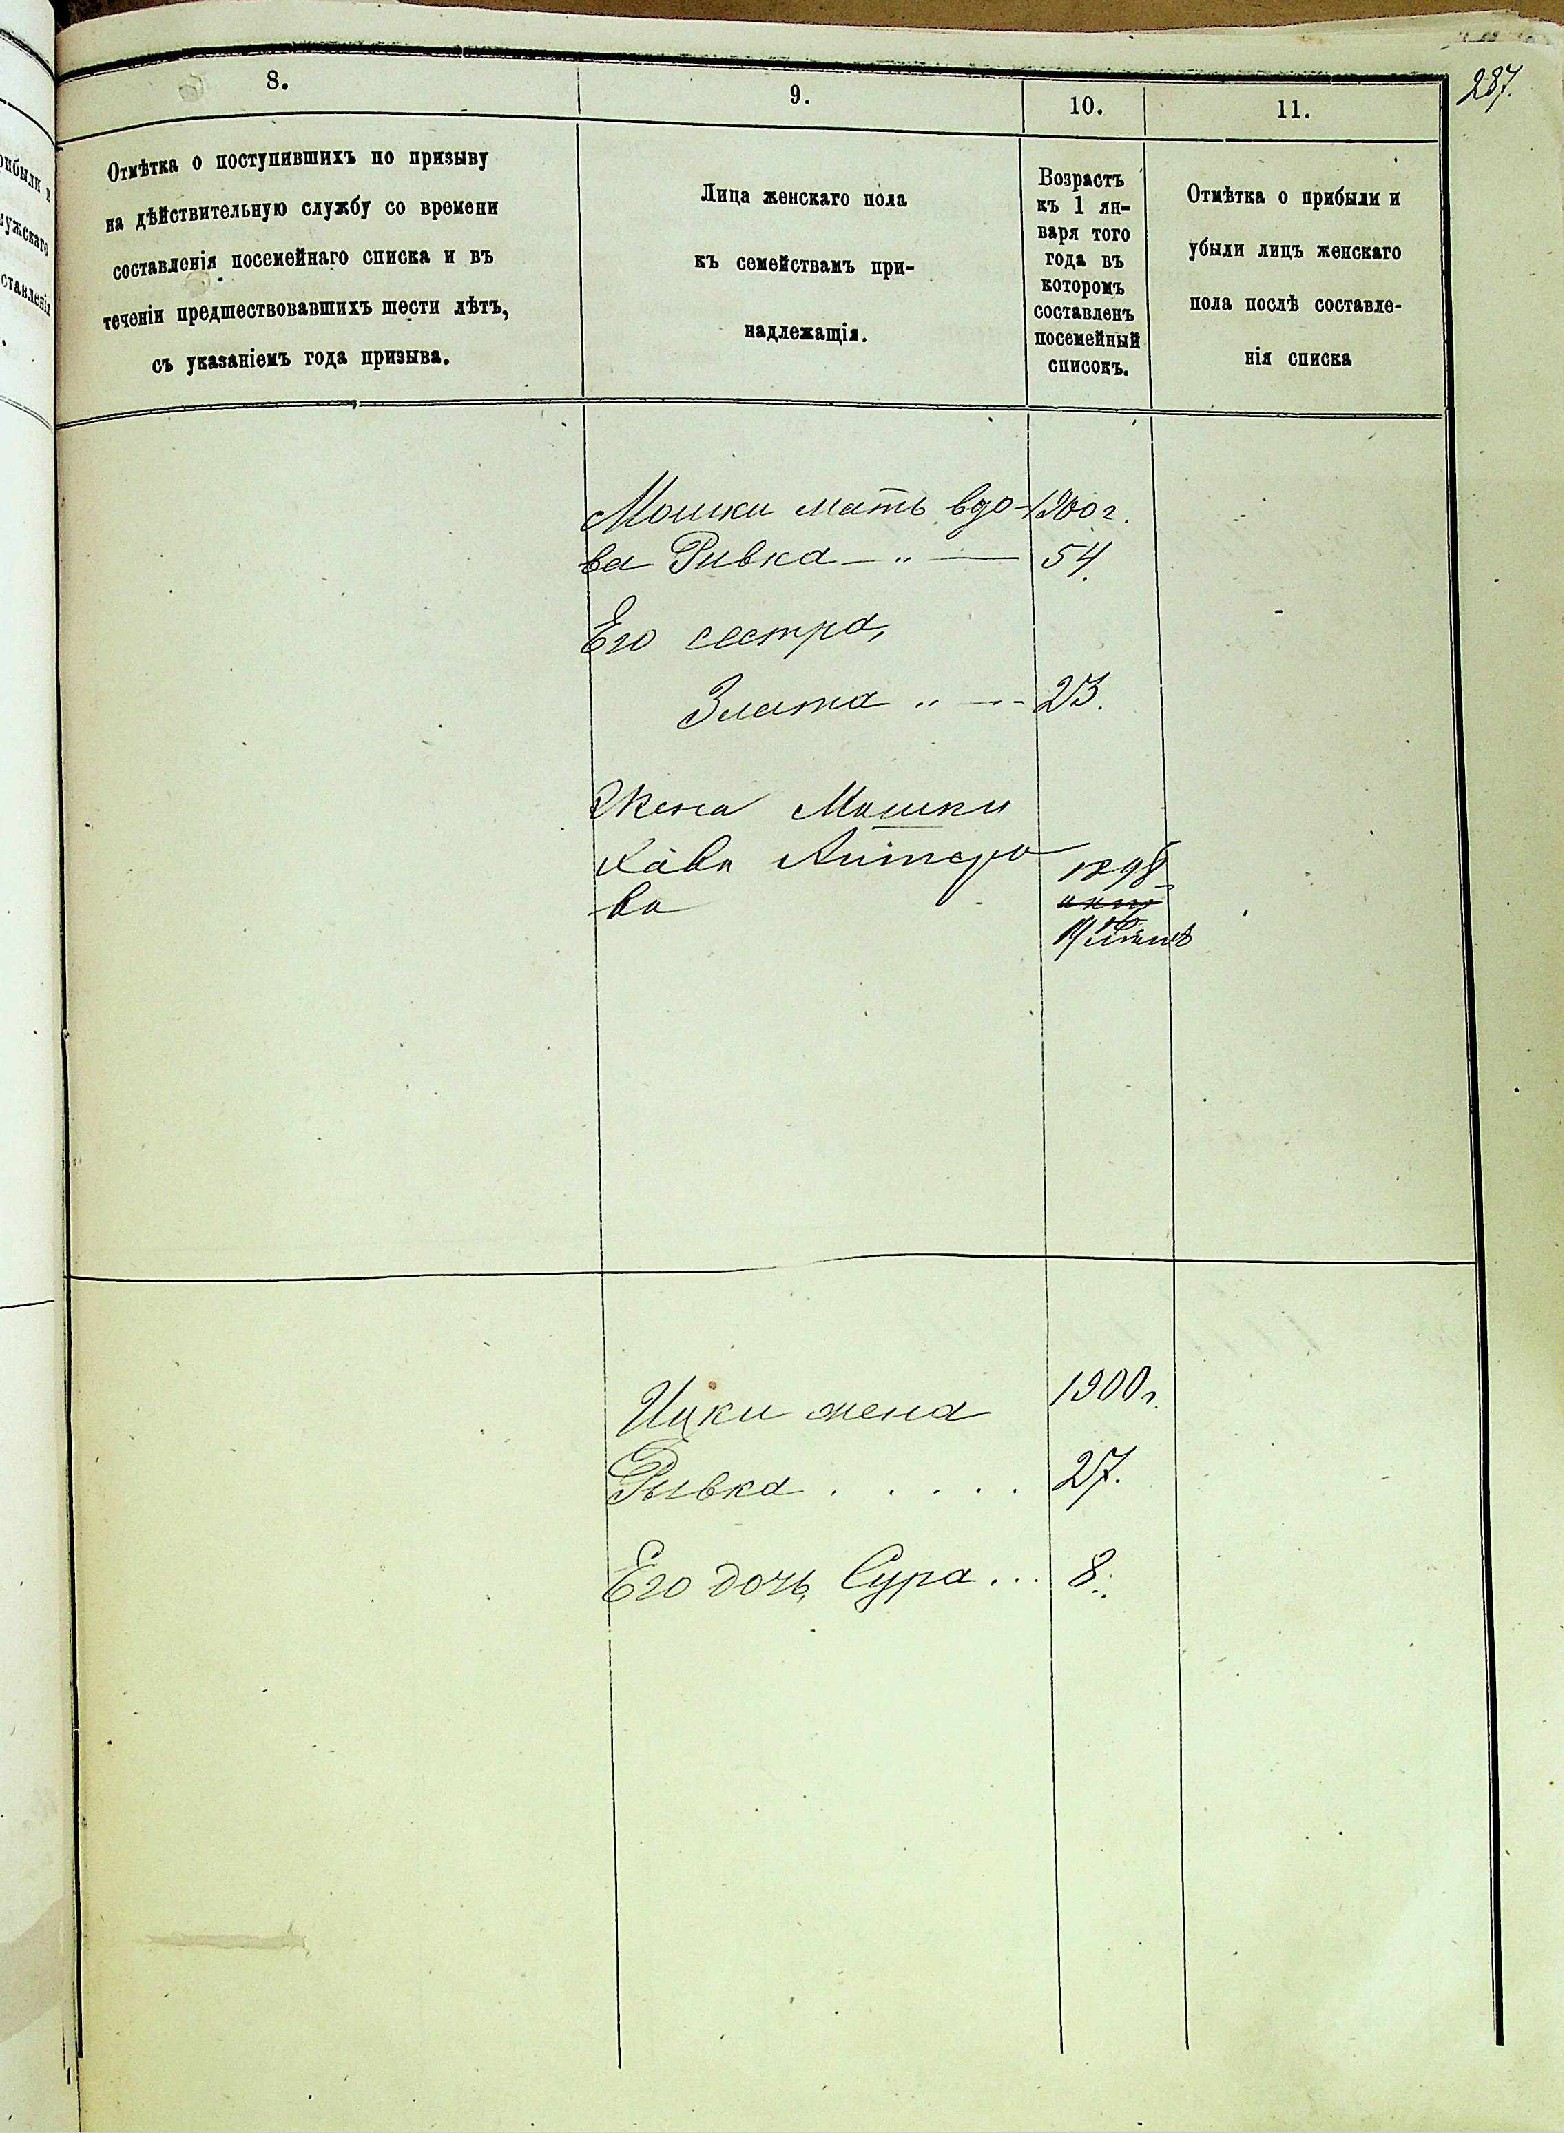 287.
8.
9.
10.
11.
Отмѣтка о поступившихъ по призыву
на дѣйствительную службу со времени
составленія посемейнаго списка и въ
теченіи предшествовавшихъ шести лѣтъ,
съ указаніемъ года призыва.
Лица женскаго пола
къ семействамъ при-
надлежащія.
Возрастъ
къ 1 ян-
варя того
года въ
которомъ
составленъ
посемейный
списокъ.
Отмѣтка о прибыли и
убыли лицъ женскаго
пола послѣ составле-
нія списка
Мошки мать вдо- 1900 г.
ва Ривка — " — 54.
Его сестра,
Злата " — 23.
Жена Мошки
Хава
ва 1898
Ицки жена 1900 г.
Рывка . . . . . 27.
Его дочь Сура ... 8.